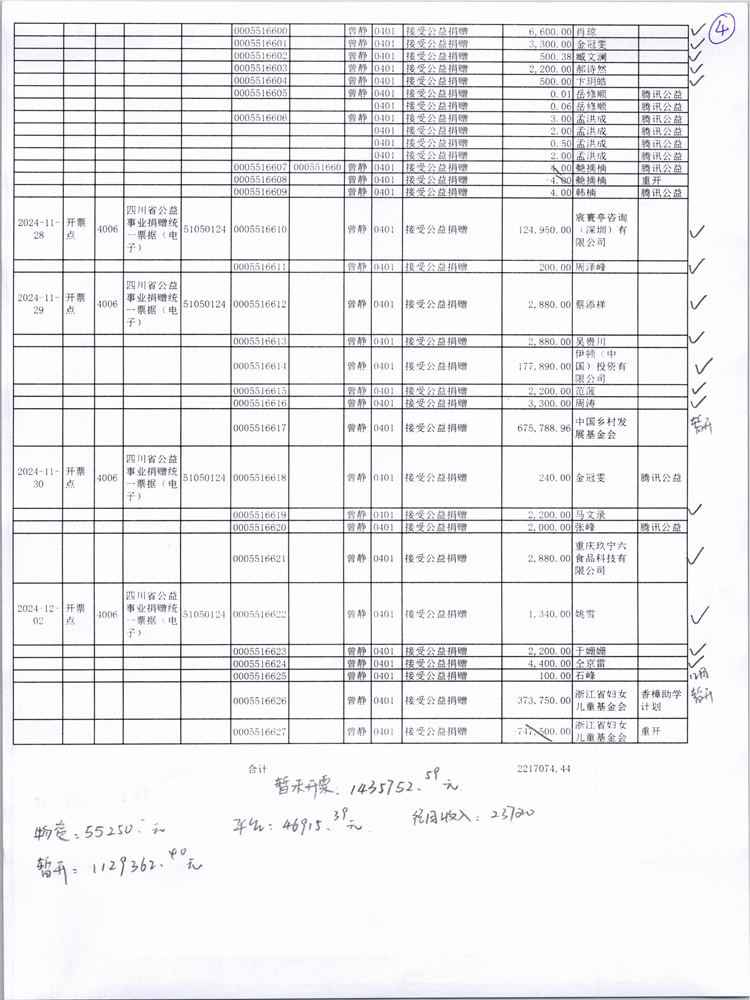 ④
0005516600 曾静 0401 接受公益捐赠 6,600.00 肖琼 ✓
0005516601 曾静 0401 接受公益捐赠 3,300.00 金冠雯 ✓
0005516602 曾静 0401 接受公益捐赠 500.38 臧文澜 ✓
0005516603 曾静 0401 接受公益捐赠 2,200.00 郝诗然 ✓
0005516604 曾静 0401 接受公益捐赠 500.00 卞玥皓 ✓
0005516605 曾静 0401 接受公益捐赠 0.01 岳修顺 腾讯公益
0401 接受公益捐赠 0.06 岳修顺 腾讯公益
0005516606 曾静 0401 接受公益捐赠 3.00 孟洪成 腾讯公益
0401 接受公益捐赠 2.00 孟洪成 腾讯公益
0401 接受公益捐赠 0.50 孟洪成 腾讯公益
0401 接受公益捐赠 2.00 孟洪成 腾讯公益
0005516607 000551660 曾静 0401 接受公益捐赠 4.00 腾讯公益
0005516608 曾静 0401 接受公益捐赠 4.00 重开
0005516609 曾静 0401 接受公益捐赠 4.00 韩楠 腾讯公益
2024-11-
28
开票
点
4006
四川省公益
事业捐赠统
一票据（电
子）
51050124 0005516610 曾静 0401 接受公益捐赠 124,950.00
宸寰亭咨询
（深圳）有
限公司
✓
0005516611 曾静 0401 接受公益捐赠 200.00 周泽峰 ✓
2024-11-
29
开票
点
4006
四川省公益
事业捐赠统
一票据（电
子）
51050124 0005516612 曾静 0401 接受公益捐赠 2,880.00 蔡添样 ✓
0005516613 曾静 0401 接受公益捐赠 2,880.00 吴贵川 ✓
0005516614 曾静 0401 接受公益捐赠 177,890.00
伊顿（中
国）投资有
限公司
✓
0005516615 曾静 0401 接受公益捐赠 2,200.00 范菠 ✓
0005516616 曾静 0401 接受公益捐赠 3,300.00 周涛 ✓
0005516617 曾静 0401 接受公益捐赠 675,788.96
中国乡村发
展基金会
暂开
2024-11-
30
开票
点
4006
四川省公益
事业捐赠统
一票据（电
子）
51050124 0005516618 曾静 0401 接受公益捐赠 240.00 金冠雯 腾讯公益
0005516619 曾静 0401 接受公益捐赠 2,200.00 马文录 ✓
0005516620 曾静 0401 接受公益捐赠 2,000.00 张峰 腾讯公益
0005516621 曾静 0401 接受公益捐赠 2,880.00
重庆玖宁六
食品科技有
限公司
✓
2024-12-
02
开票
点
4006
四川省公益
事业捐赠统
一票据（电
子）
51050124 0005516622 曾静 0401 接受公益捐赠 1,340.00 姚雪 ✓
0005516623 曾静 0401 接受公益捐赠 2,200.00 于姗姗 ✓
0005516624 曾静 0401 接受公益捐赠 4,400.00 仝京雷 ✓
0005516625 曾静 0401 接受公益捐赠 100.00 石峰 12月
0005516626 曾静 0401 接受公益捐赠 373,750.00
浙江省妇女
儿童基金会
香樟助学
计划
暂开
0005516627 曾静 0401 接受公益捐赠 747,500.00
浙江省妇女
儿童基金会
重开
合计 2217074.44
暂未开票：1435752.59元
物资：55250元 平台：46915.39元 收入：23720
暂开：1129362.40元